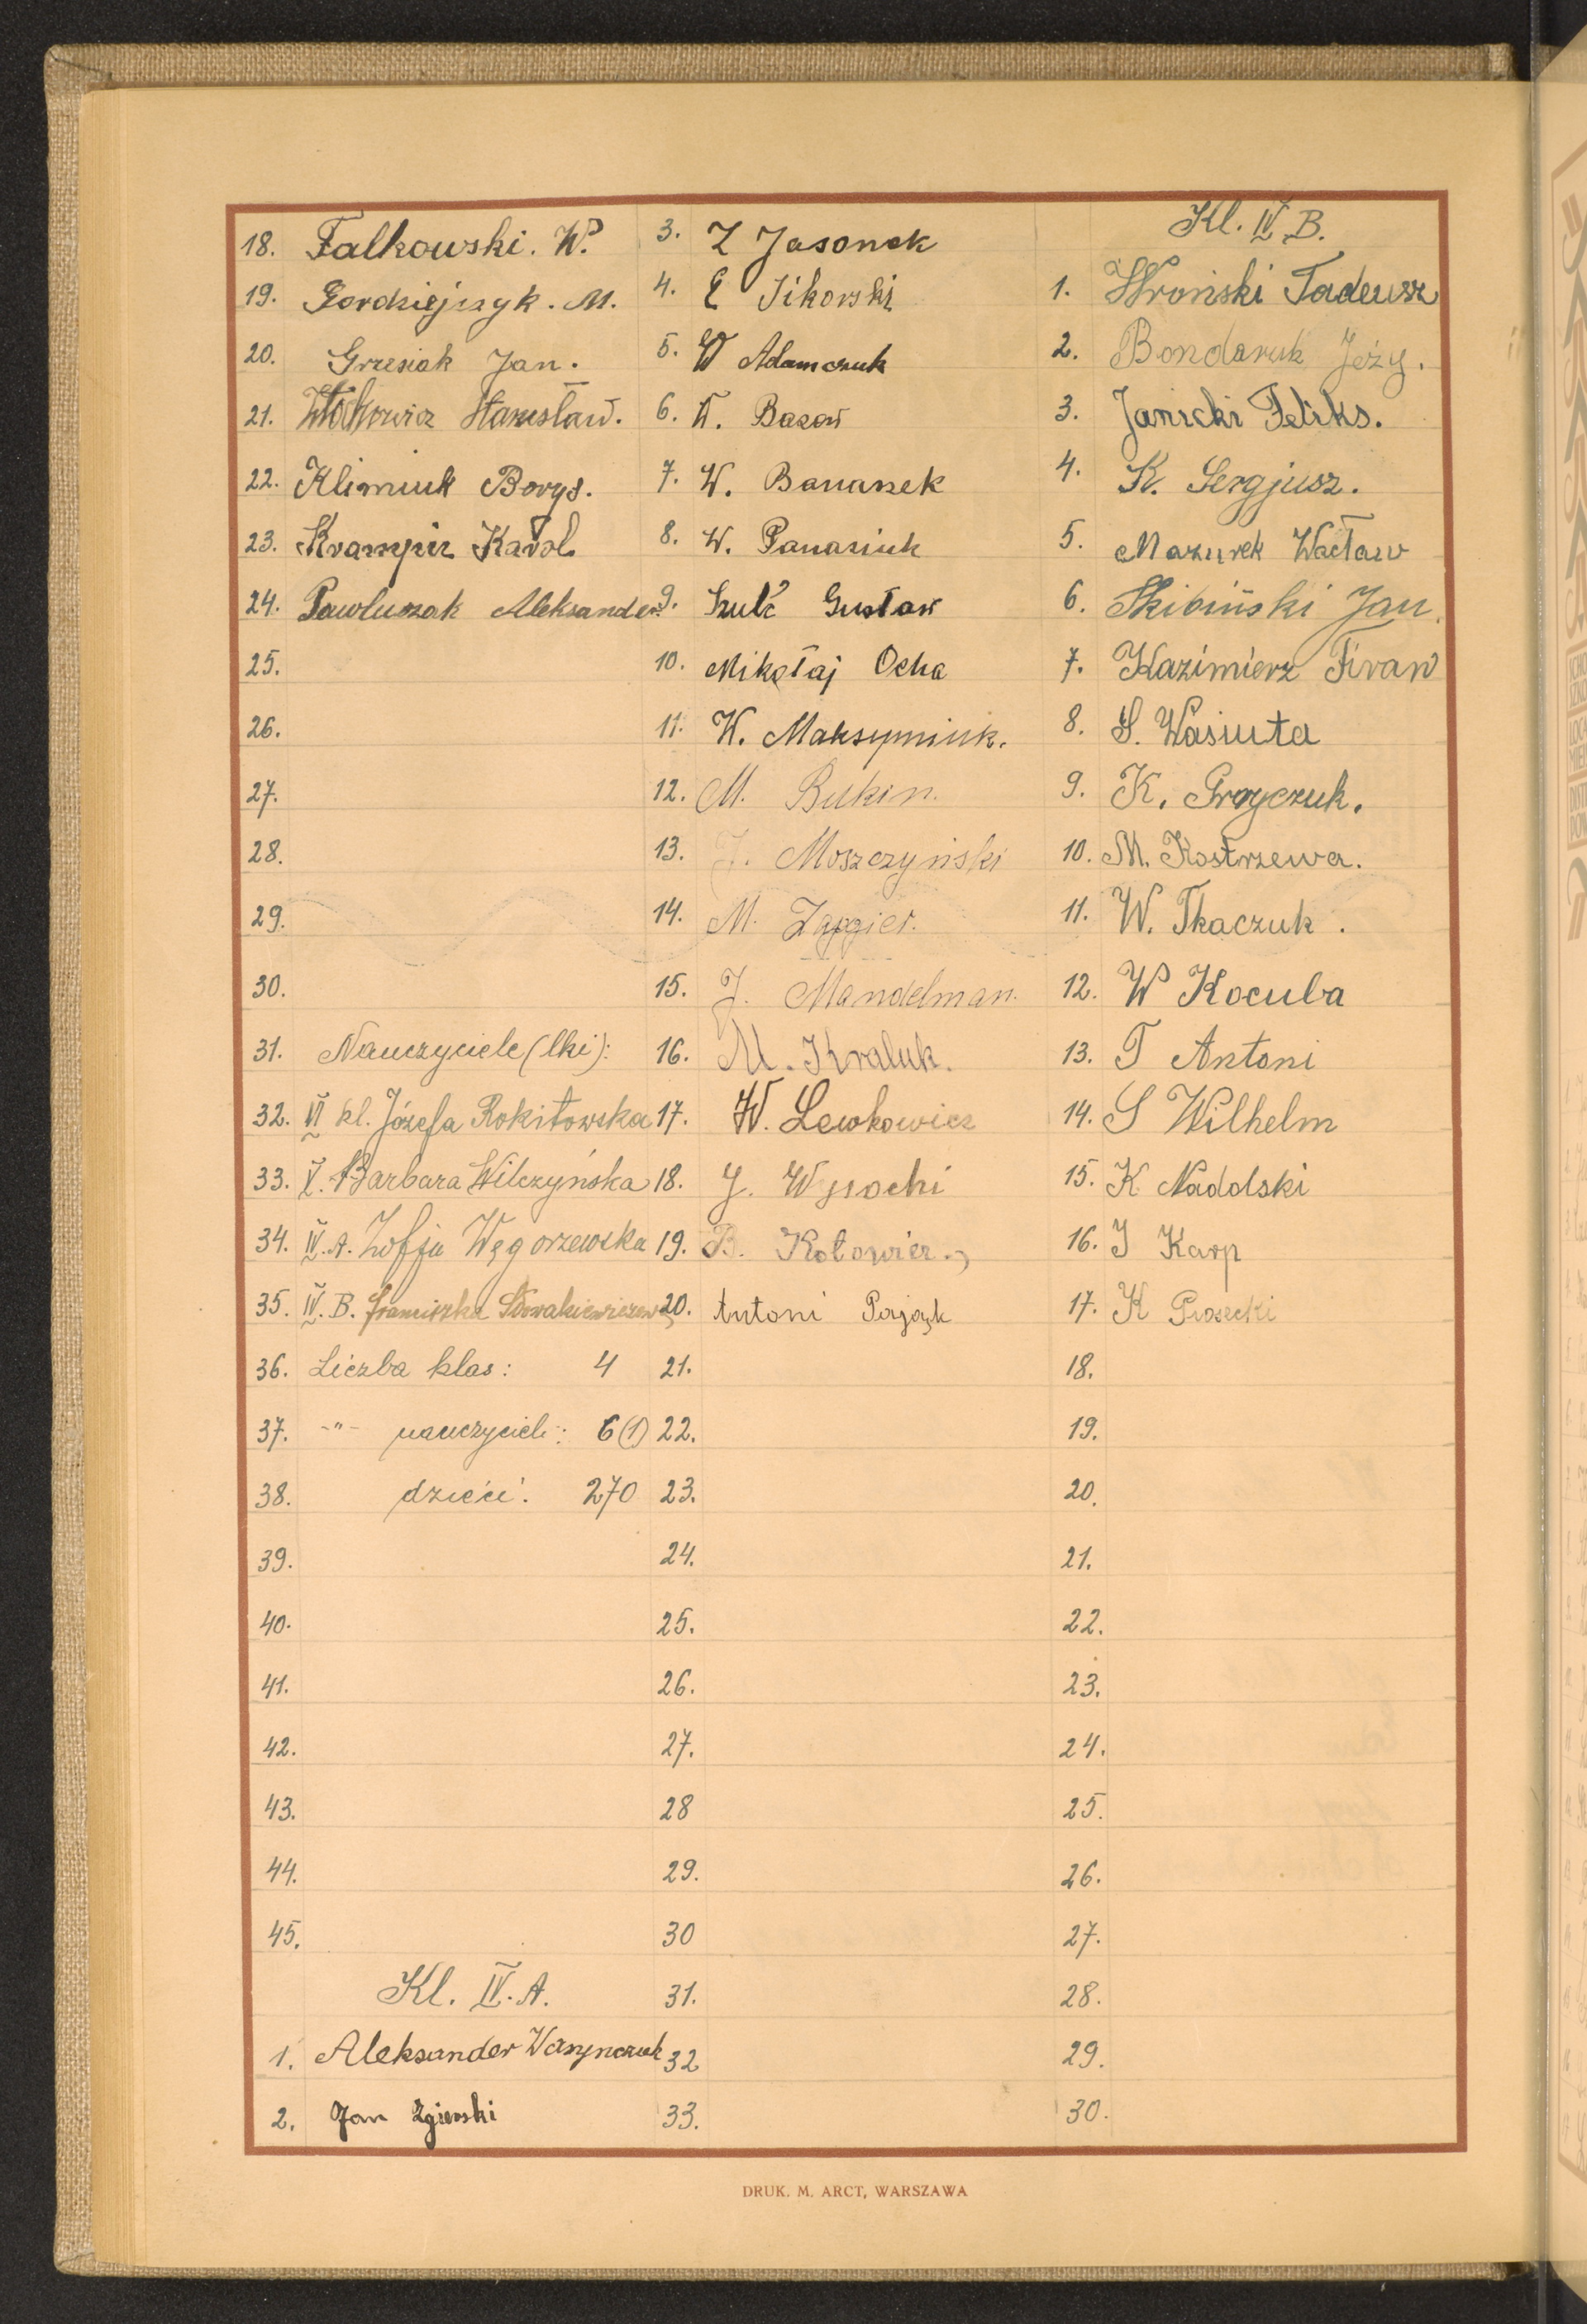 18. Falkowski. W.
19. Gordziejczyk. M.
20. Grzesiak Jan.
21. Stanisław.
22. Klimiuk Borys.
23. Karol
24. Pawluczak Aleksander
25.
26.
27.
28.
29.
30.
31. Nauczyciele (lki):
32. VI kl. Józefa Rokitowska
33. V. Barbara Wilczyńska
34. IV. A. Zofja Węgorzewska
35. IV. B. Franciszka
36. Liczba klas: 4
37. -"- nauczycieli: 6 (1)
38. dzieci: 270
39.
40.
41.
42.
43.
44.
45.
Kl. IV. A.
1. Aleksander
2. Jan Zgierski
3. Z Jasonek
4. E Sikorski
5. W Adamczuk
6. W. Bazow
7. W. Bananek
8. W. Panasiuk
9. Szulc Gustaw
10. Mikołaj Ocha
11. W. Maksymiuk.
12. M. Bukin.
13. J. Moszczyński
14. M.
15. J. Mandelman.
16. M. Kraluk.
17. W. Lewkowicz
18. J. Wysocki
19. B. Kotowicz.
20. Antoni Pająk
21.
22.
23.
24.
25.
26.
27.
28
29.
30
31.
32
33.
Kl. IV B.
1. Wroński Tadeusz
2. Bondaruk Jeży.
3. Janicki Feliks.
4. K. Sergjusz.
5. Mazurek Wacław
6. Skibiński Jan.
7. Kazimierz Firan
8. S. Wasiuta
9. K.
10. M. Kostrzewa.
11. W. Tkaczuk.
12. W Kocuba
13. T Antoni
14. S Wilhelm
15. K Nadolski
16. J Karp
17. K Piosecki
18.
19.
20.
21.
22.
23.
24.
25.
26.
27.
28.
29.
30.
DRUK. M. ARCT, WARSZAWA